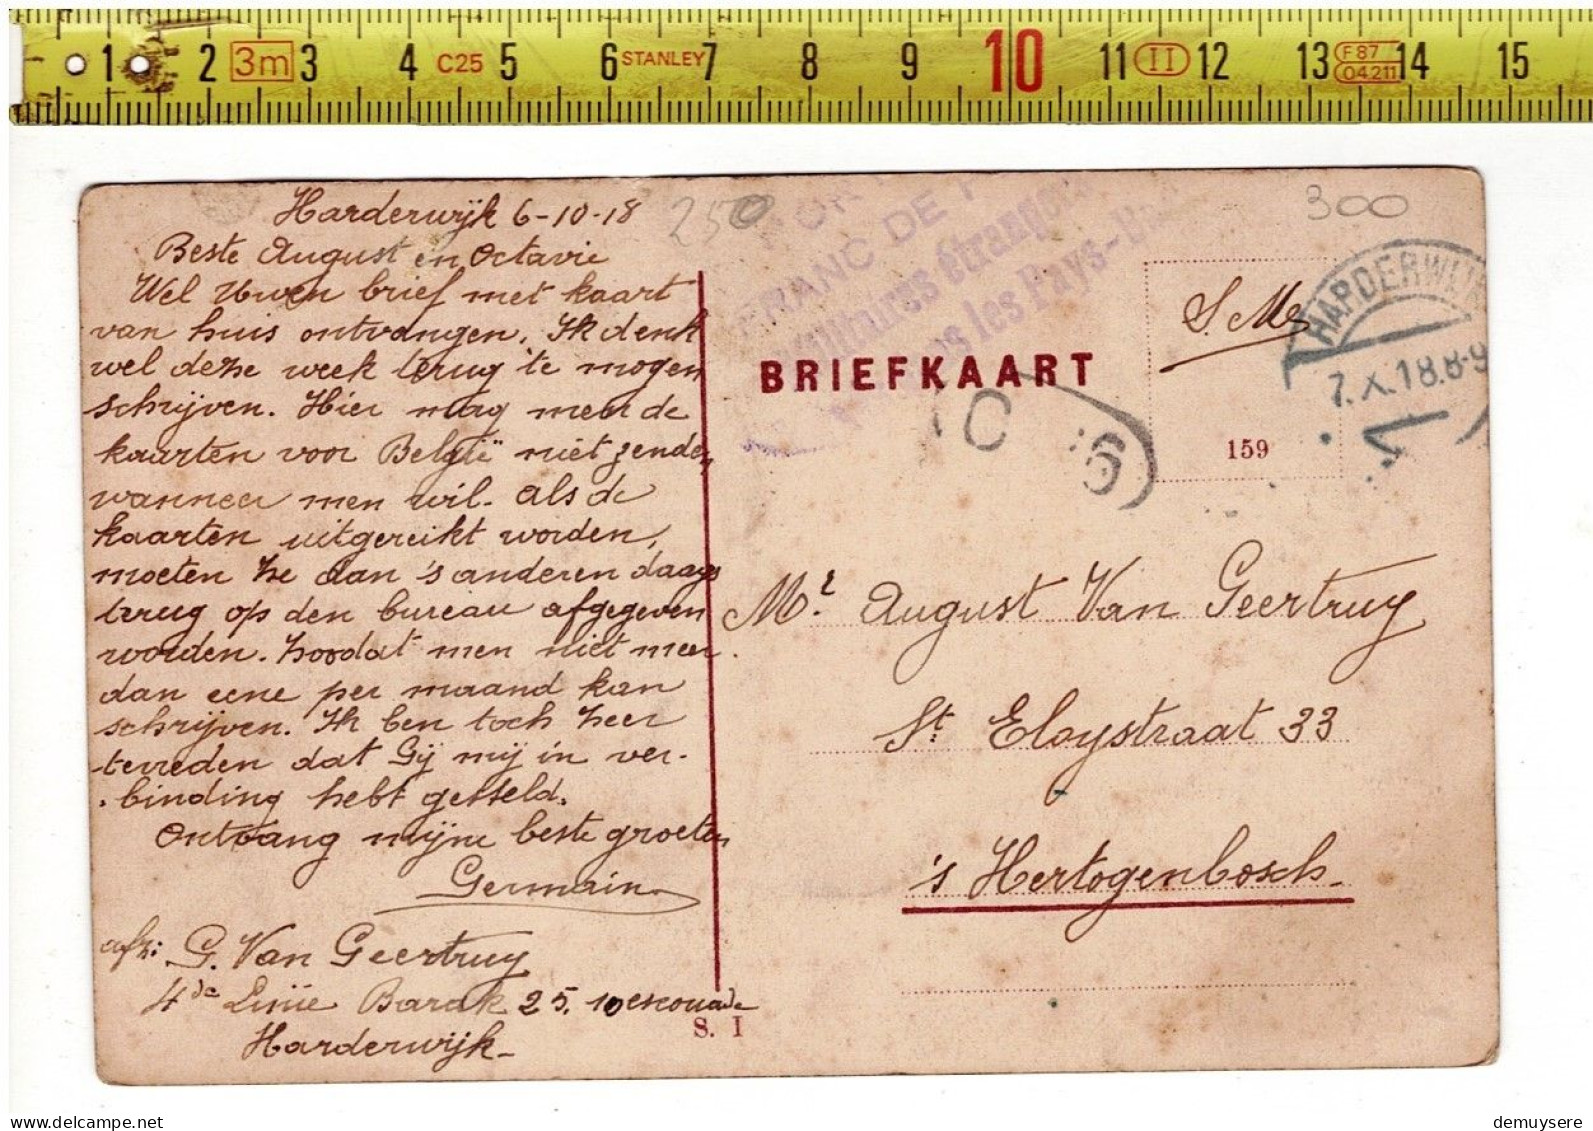 1 2 3m 3 4 C25 5 6 STANLEY 7 8 9 10 11 II 12 13 F 87 04.211 14 15
Harderwijk 6-10-18
Beste August en Octavie
Wel Uwen brief met kaart
van huis ontvangen. Ik denk
wel deze week terug te mogen
schrijven. Hier mag men de
kaarten voor België niet zenden,
wanneer men wil. Als de
kaarten uitgereikt worden,
moeten ze dan 's anderen daags
terug op den bureau afgegeven
worden. Zoodat men niet meer
dan eene per maand kan
schrijven. Ik ben toch zeer
terreden dat Gij mij in ver-
binding hebt gesteld.
Ontvang mijne beste groeten
Germain
afz: G. Van Geertruy
4de Linie Barak 25. 10 escouade
Harderwijk
S. I
250
300
FRANC DE
Militaires étrangers
les Pays-Bas
BRIEFKAART
S. M.
159
HARDERWIJK
7.X.18.8-9
1
Mr. August Van Geertruy
St Eloystraat 33
's Hertogenbosch
www.delcampe.net
demuysere